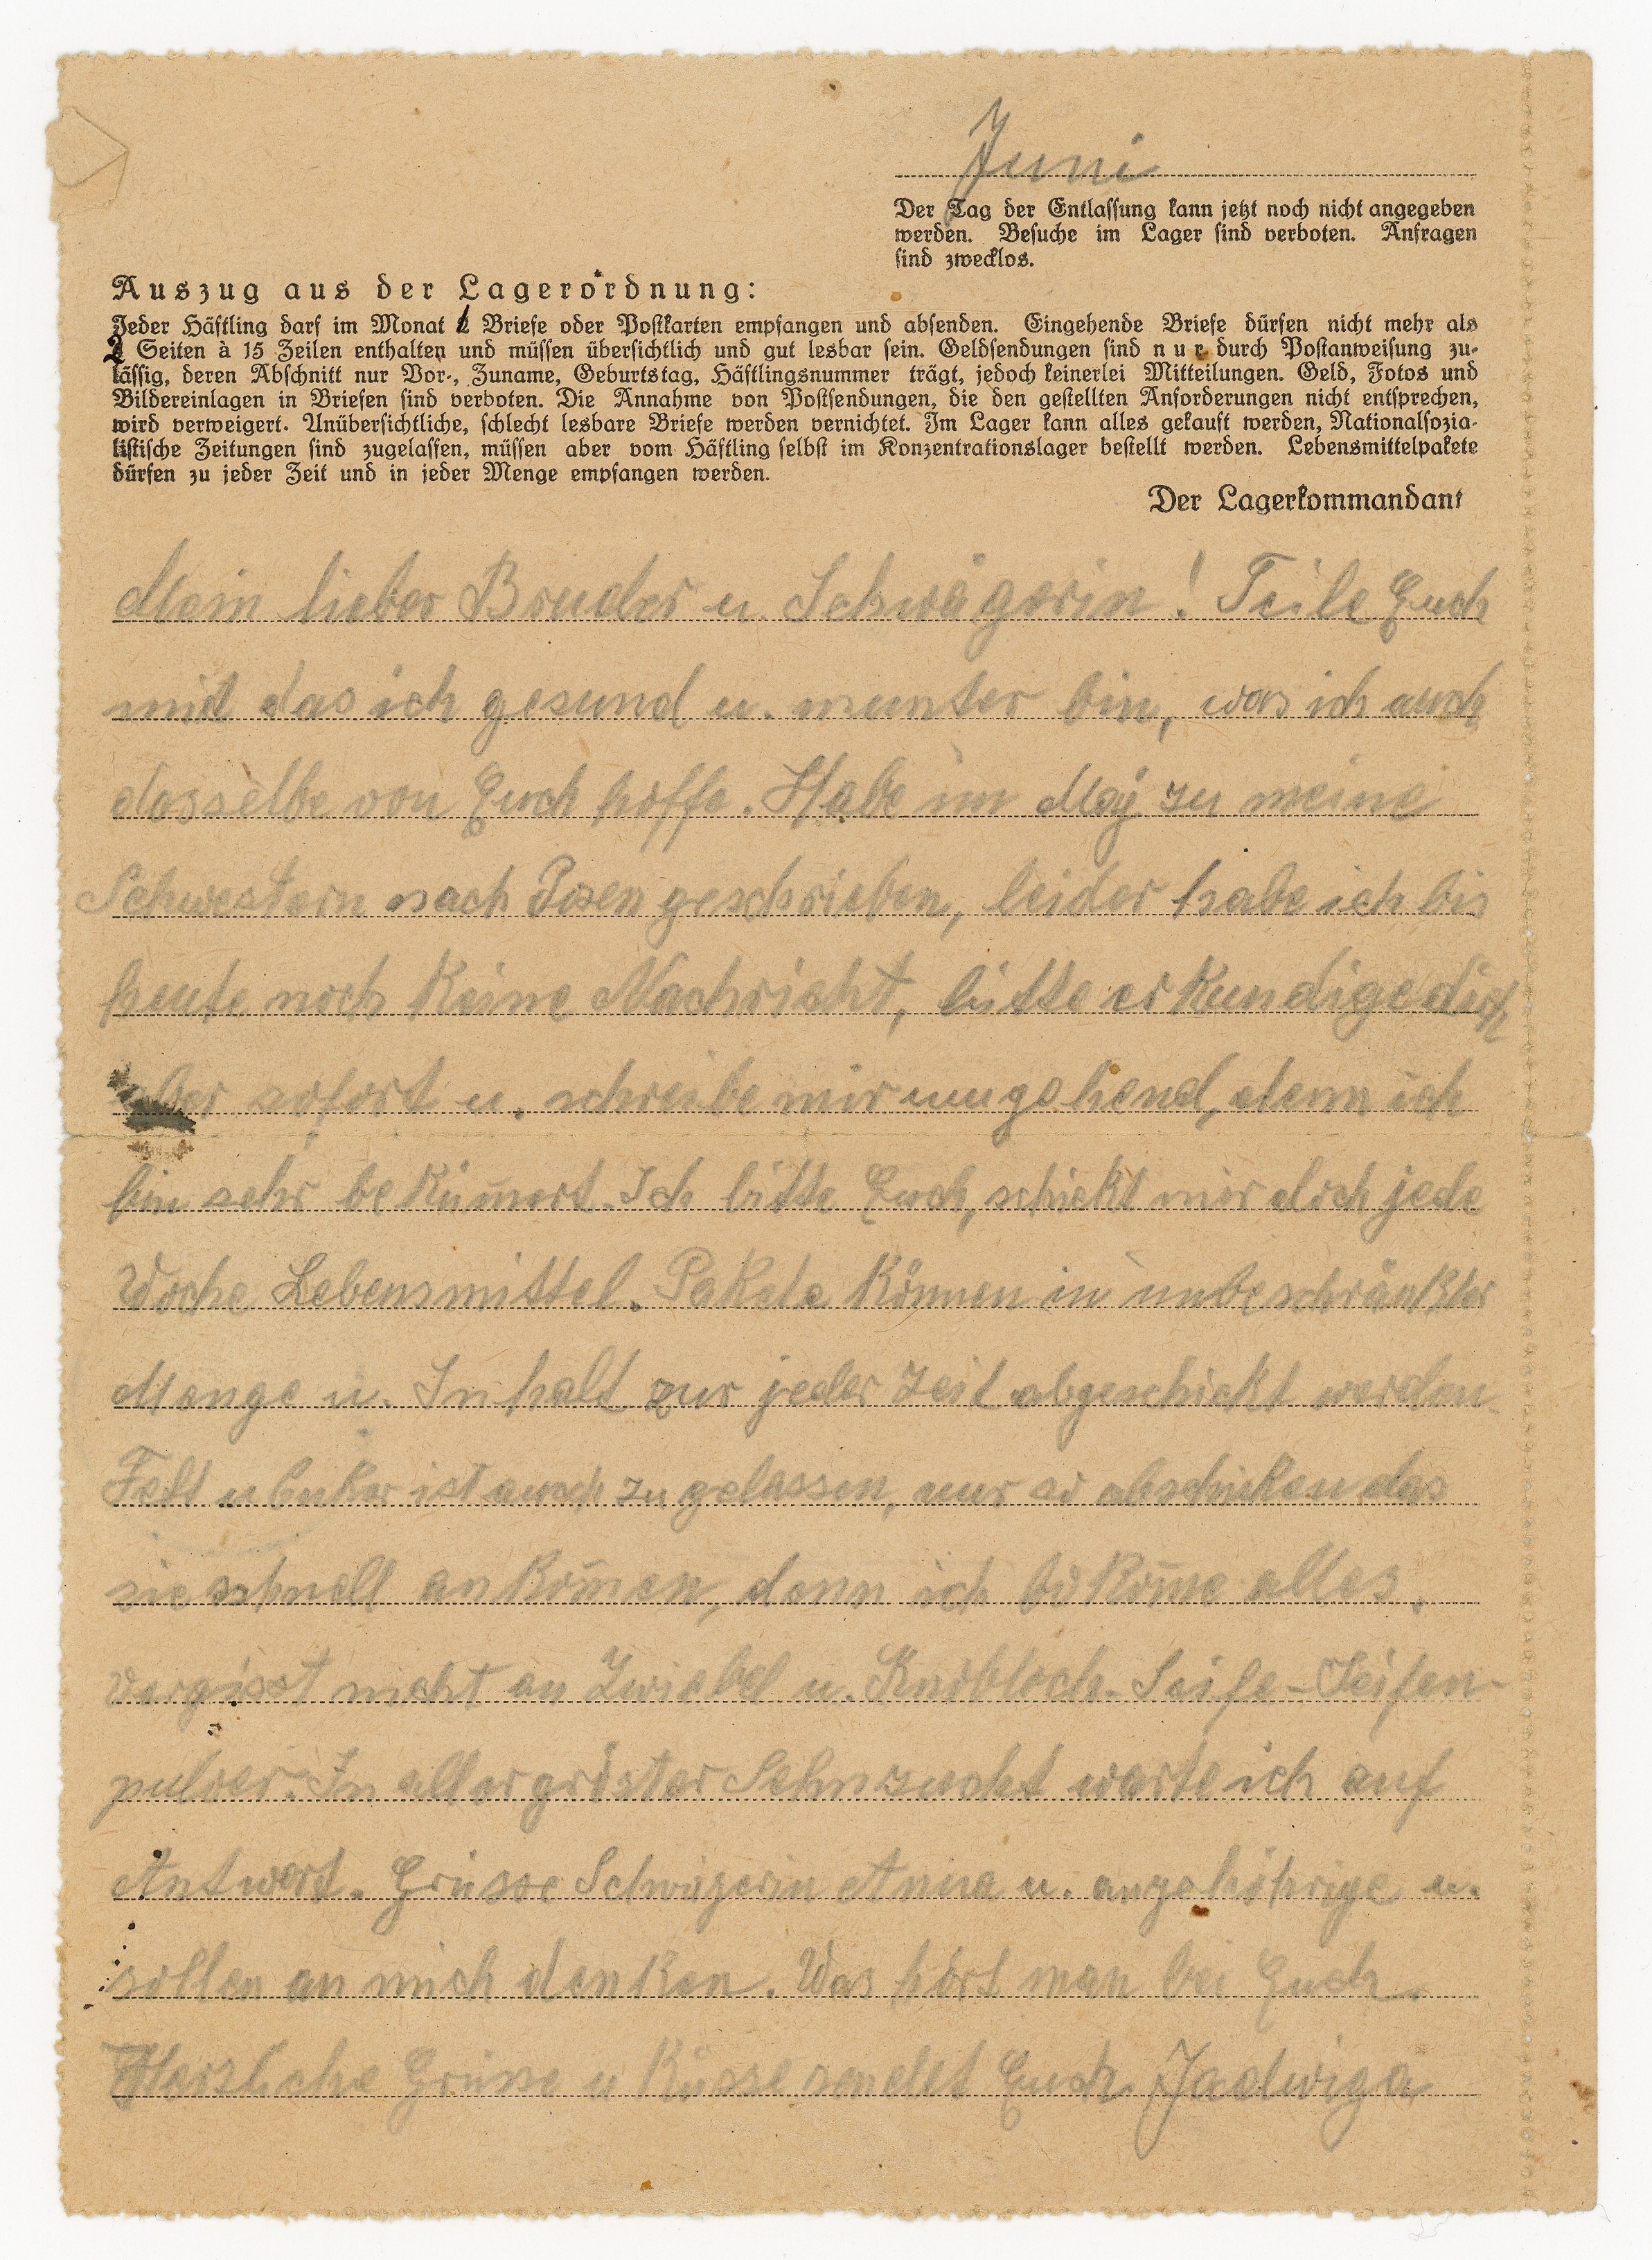 Juni
Der Tag der Entlassung kann jetzt noch nicht angegeben
werden. Besuche im Lager sind verboten. Anfragen
sind zwecklos.
Auszug aus der Lagerordnung:
Jeder Häftling darf im Monat Briefe oder Postkarten empfangen und absenden. Eingehende Briefe dürfen nicht mehr als
2 Seiten à 15 Zeilen enthalten und müssen übersichtlich und gut lesbar sein. Geldsendungen sind nur durch Postanweisung zu-
lässig, deren Abschnitt nur Vor-, Zuname, Geburtstag, Häftlingsnummer trägt, jedoch keinerlei Mitteilungen. Geld, Fotos und
Bildereinlagen in Briefen sind verboten. Die Annahme von Postsendungen, die den gestellten Anforderungen nicht entsprechen,
wird verweigert. Unübersichtliche, schlecht lesbare Briefe werden vernichtet. Im Lager kann alles gekauft werden, Nationalsozia-
listische Zeitungen sind zugelassen, müssen aber vom Häftling selbst im Konzentrationslager bestellt werden. Lebensmittelpakete
dürfen zu jeder Zeit und in jeder Menge empfangen werden.
Der Lagerkommandant
Mein lieber Bruder u. Schwägerin! Teile Euch
mit das ich gesund u. munter bin, was ich auch
dasselbe von Euch hoffe. Habe im Maj zu meine
Schwestern nach Posen geschrieben, leider habe ich bis
heute noch keine Nachricht, bitte erkundige dich
aber sofort u. schreibe mir umgehend, denn ich
bin sehr bekümert. Ich bitte Euch, schickt mir doch jede
Woche Lebensmittel. Pakete können in unbeschränkter
Menge u. Inhalt zur jeder Zeit abgeschickt werden.
Fett u ist auch zugelassen, nur so abschicken das
sie schnell ankom̄en, denn ich bekom̄e alles.
Vergisst nicht an Zwiebel u. Knobloch. Seife-Seifen-
pulver. In allergröster Sehnzucht warte ich auf
Antwort. Grüsse Schwägerin Anna u. angehöhrige u.
sollen an mich denken. Was hört man bei Euch.
Herzliche Grüsse u Küsse sendet Euch Jadwiga